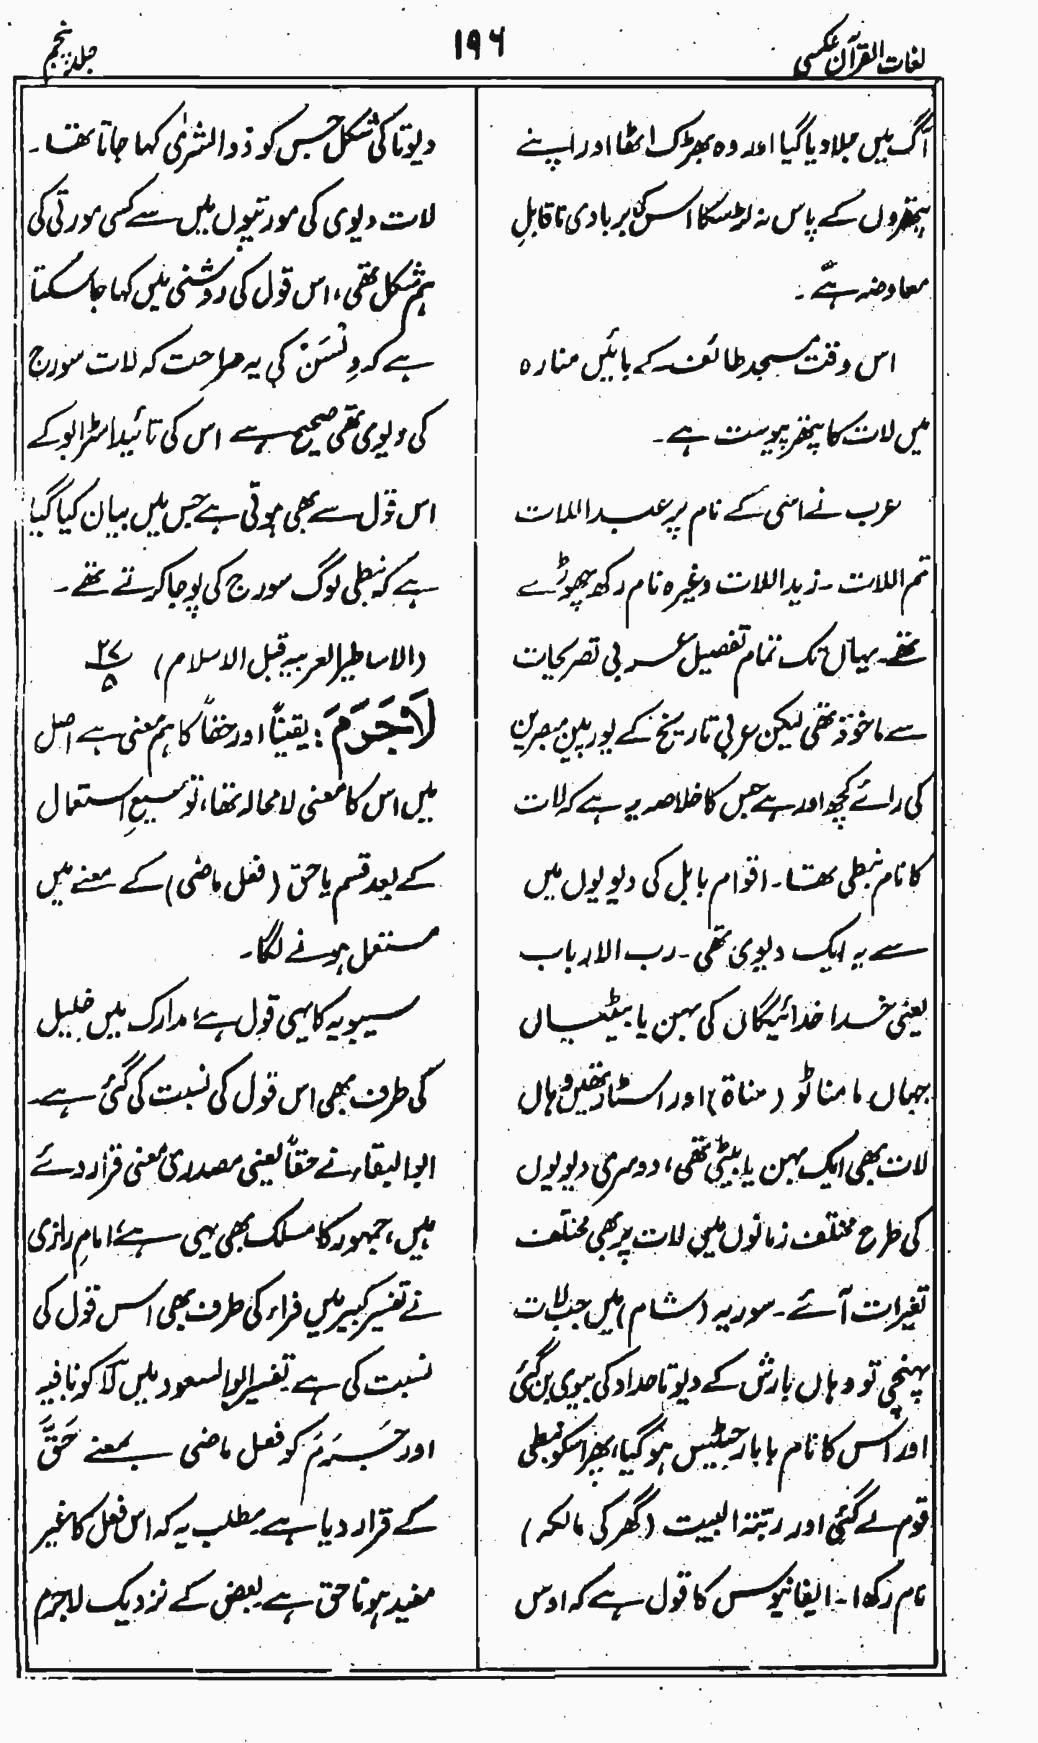 لغات القرآن عکسی
۱۹۶
جلد پنجم
آگ میں جلا دیا گیا اور وہ بھڑک اٹھا اور اپنے
پتھروں کے پاس نہ لڑ سکا اس کی بربادی ناقابلِ
معاوضہ ہے۔
اس وقت مسجد طائف کے بائیں منارہ
میں لات کا پتھر پیوست ہے۔
عرب نے اسی کے نام پر عبد اللات
تیم اللات ۔ زید اللات وغیرہ نام رکھ چھوڑے
تھے۔ یہاں تک تمام تفصیل عربی تصریحات
سے ماخوذ تھی لیکن عربی تاریخ کے یورپین مبصرین
کی رائے کچھ اور ہے جس کا خلاصہ یہ ہے کہ لات
کا نام نبطی تھا۔ اقوام بابل کی دیویوں میں
سے یہ ایک دیوی تھی۔ رب الارباب
یعنی خدا خدائیگاں کی بہن یا بیٹیاں
جہاں مامناٹو (مناۃ) اور اسٹار تھیں وہاں
لات بھی ایک بہن یا بیٹی تھی، دوسری دیویوں
کی طرح مختلف زمانوں میں لات پر بھی مختلف
تغیرات آئے۔ سوریہ (شام) میں جب لات
پہنچی تو وہاں بارش کے دیوتا حداد کی بیوی بن گئی
اور اس کا نام ہو گیا، پھر اسکو نبطی
قوم لے گئی اور ربۃ البیت (گھر کی مالکہ)
نام رکھا۔ ایفانیوس کا قول ہے کہ اوس
دیوتا کی شکل جس کو ذوالشریٰ کہا جاتا تھا۔
لات دیوی کی مورتیوں میں سے کسی مورتی کی
ہم شکل تھی، اس قول کی روشنی میں کہا جا سکتا
ہے کہ وِنسَنْ کی یہ صراحت کہ لات سورج
کی دیوی تھی صحیح ہے اس کی تائید اسٹرابو کے
اس قول سے بھی ہوتی ہے جس میں بیان کیا گیا
ہے کہ نبطی لوگ سورج کی پوجا کرتے تھے۔
(الاساطیر العربیہ قبل الاسلام) ۲۷/۵
لَاجَرَمَ: یقیناً اور حقاً کا ہم معنی ہے اصل
میں اس کا معنی لا محالہ تھا، توسیعِ استعمال
کے بعد قسم یا حق (فعل ماضی) کے معنے میں
مستعمل ہونے لگا۔
سیبویہ کا یہی قول ہے، مدارک میں خلیل
کی طرف بھی اس قول کی نسبت کی گئی ہے۔
ابو البقاء نے حقاً یعنی مصدری معنی قرار دئے
ہیں، جمہور کا مسلک بھی یہی ہے، امام رازی
نے تفسیر کبیر میں فراء کی طرف بھی اس قول کی
نسبت کی ہے تفسیر ابو السعود میں لَا کو نافیہ
اور جَرَمَ کو فعل ماضی بمعنے حَقَّ
کے قرار دیا ہے۔ مطلب یہ کہ اس فعل کا غیر
مفید ہونا حق ہے بعض کے نزدیک لاجرم